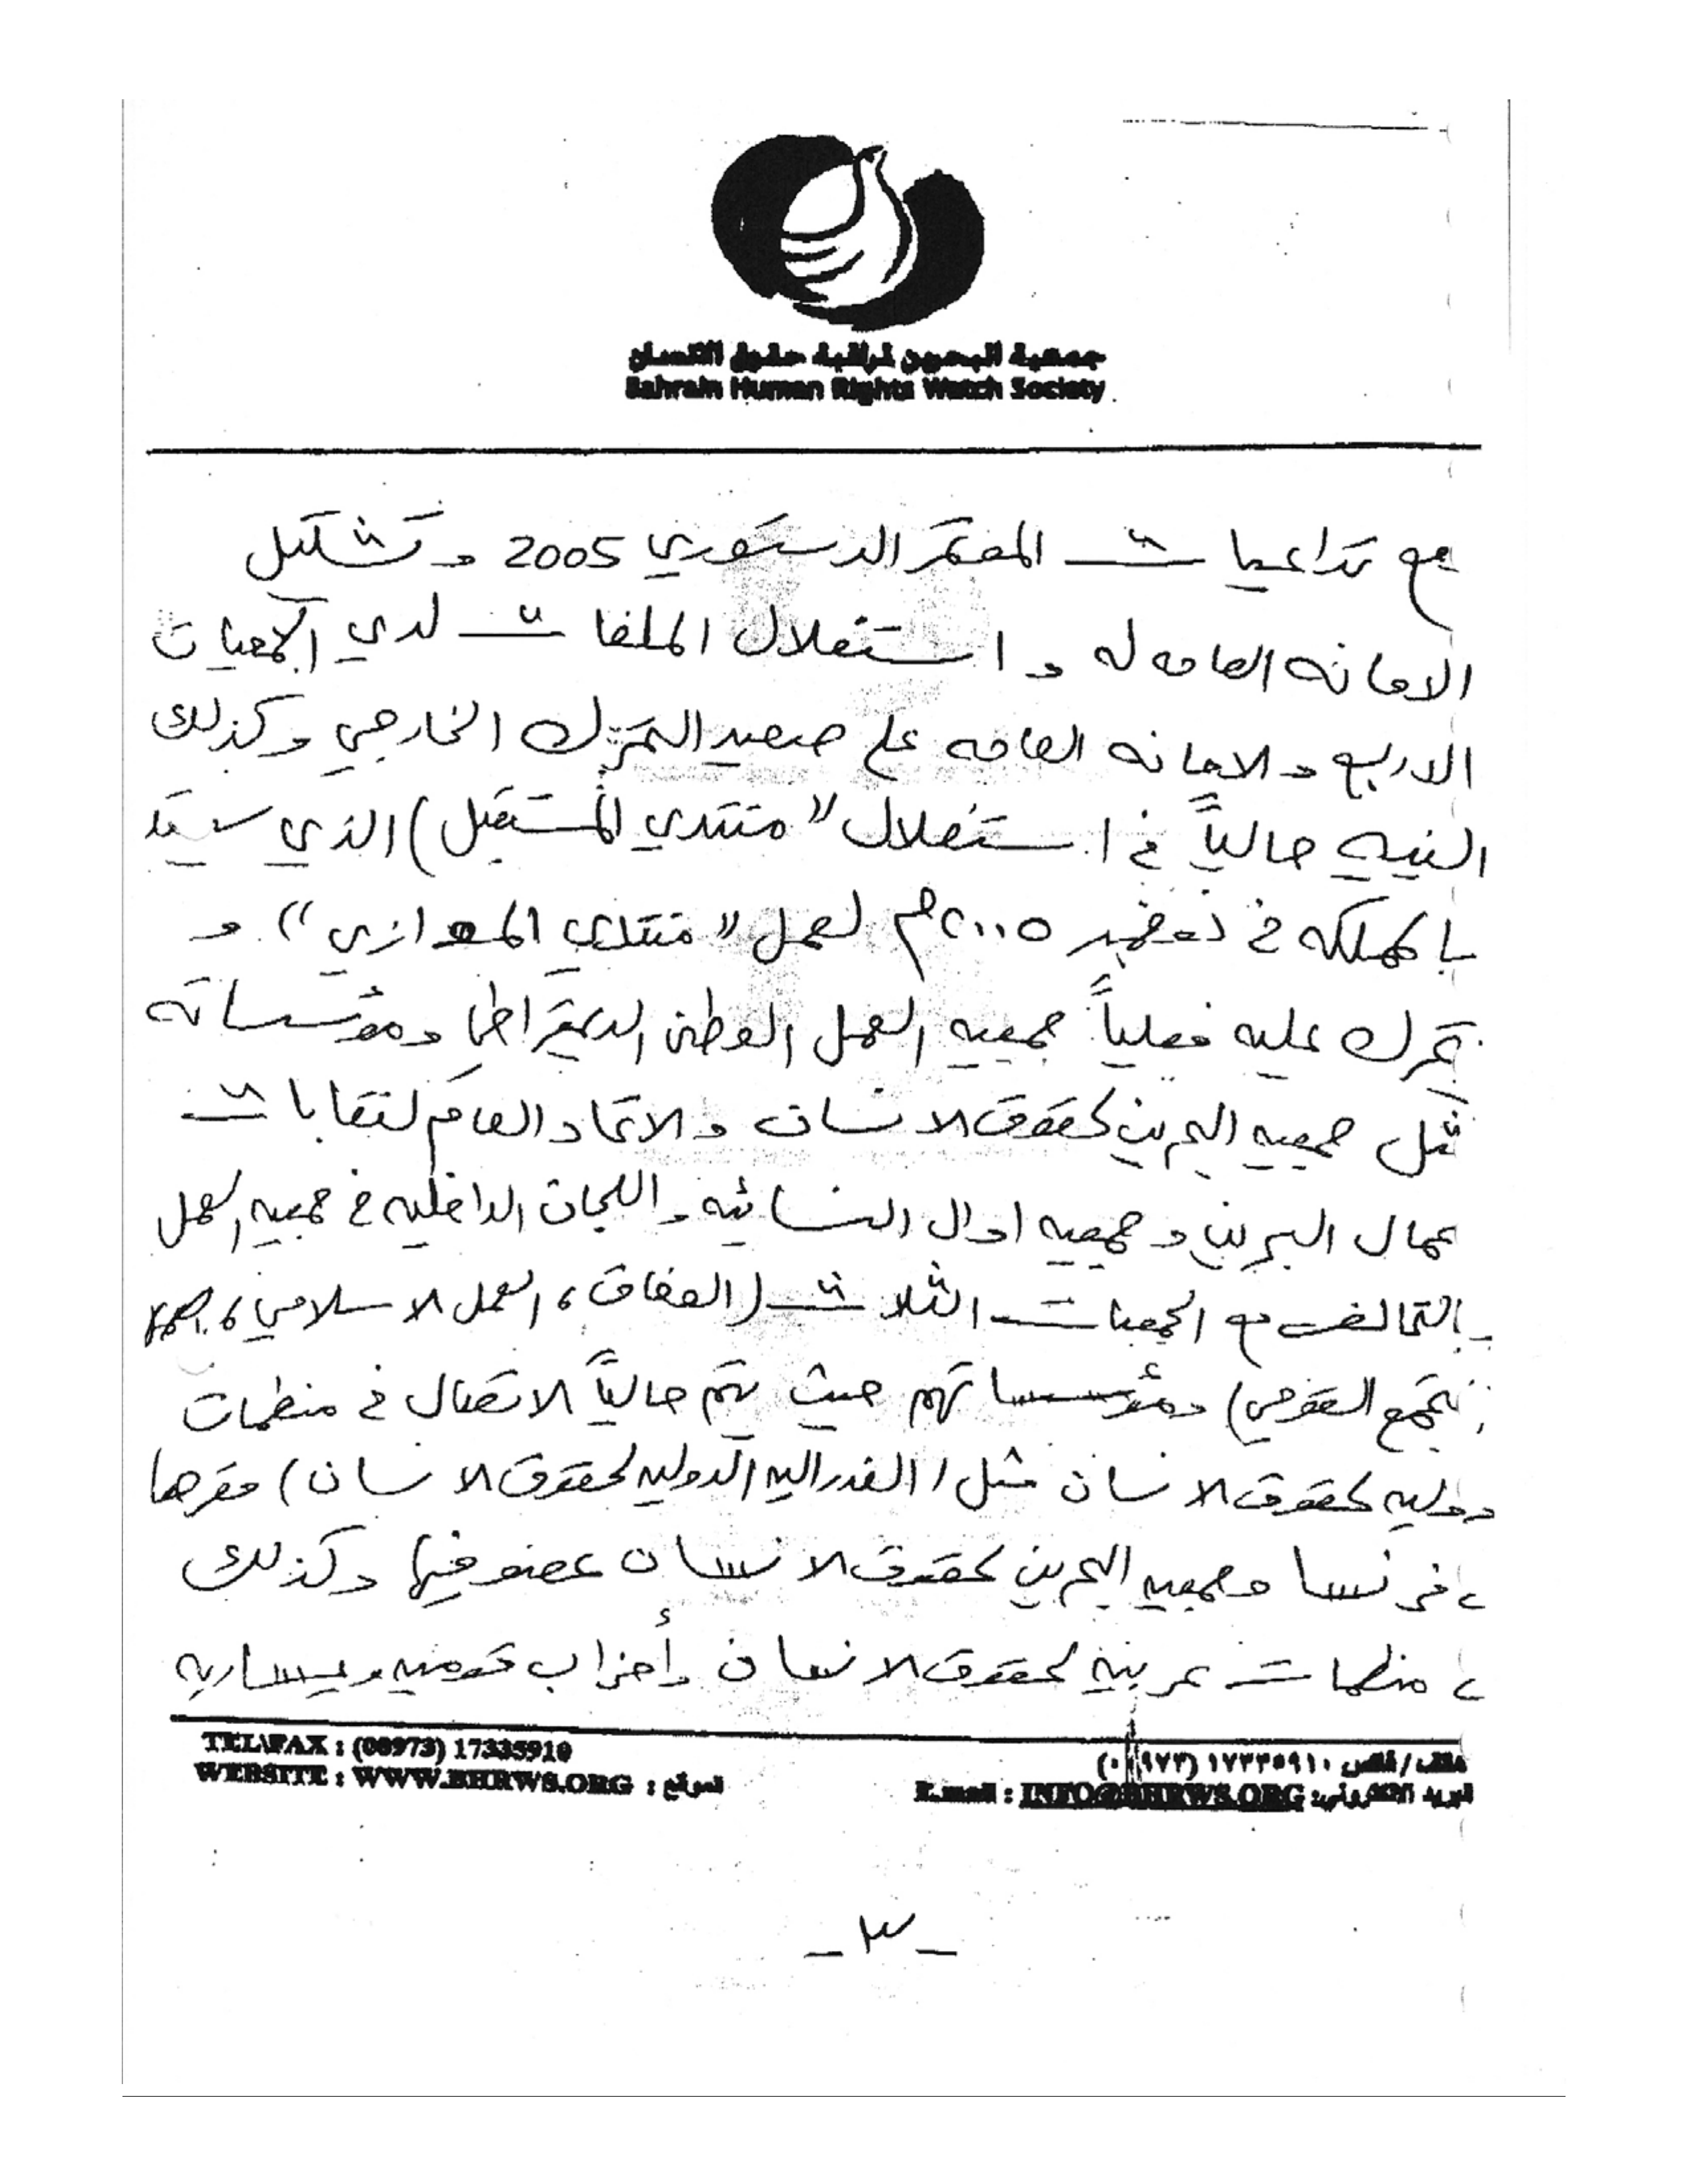 جمعية البحرين لمراقبة حقوق الانسان
Bahrain Human Rights Watch Society
مع تداعيات المؤتمر الدستوري 2005 و تشكيل
الامانه العامه له و استغلال الملفات لدي الجمعيات
الاربع و الامانه العامه على صعيد التحرك الخارجي وكذلك
النيه حالياً في استغلال " منتدي المستقبل) الذي سيعقد
بالمملكه في نوفمبر ٢٠٠٥م لعمل " منتدي الموازي") و
تحرك عليه فعلياً جمعيه العمل الوطني الديمقراطي ومؤسساته
مثل جمعيه البحرين لحقوق الانسان و الاتحاد العام لنقابات
عمال البحرين و جمعيه اوال النسائيه واللجان الداخليه في جمعيه العمل
بالتحالف مع الجمعيات الثلاث (الوفاق، العمل الاسلامي،
التجمع القومي) ومؤسساتهم حيث يتم حالياً الاتصال في منظمات
دوليه لحقوق الانسان مثل (الفدراليه الدوليه لحقوق الانسان) مقرها
فرنسا وجمعيه البحرين لحقوق الانسان عضو فيها وكذلك
منظمات عربيه لحقوق الانسان وأحزاب قوميه ويساريه
TEL\FAX : (00973) 17335910 هاتف / فاكس ١٧٣٣٥٩١٠ (٠٠٩٧٣)
WEBSITE : WWW.BHRWS.ORG : الموقع E.mail : INFO@BHRWS.ORG البريد الالكتروني:
- ٣ -